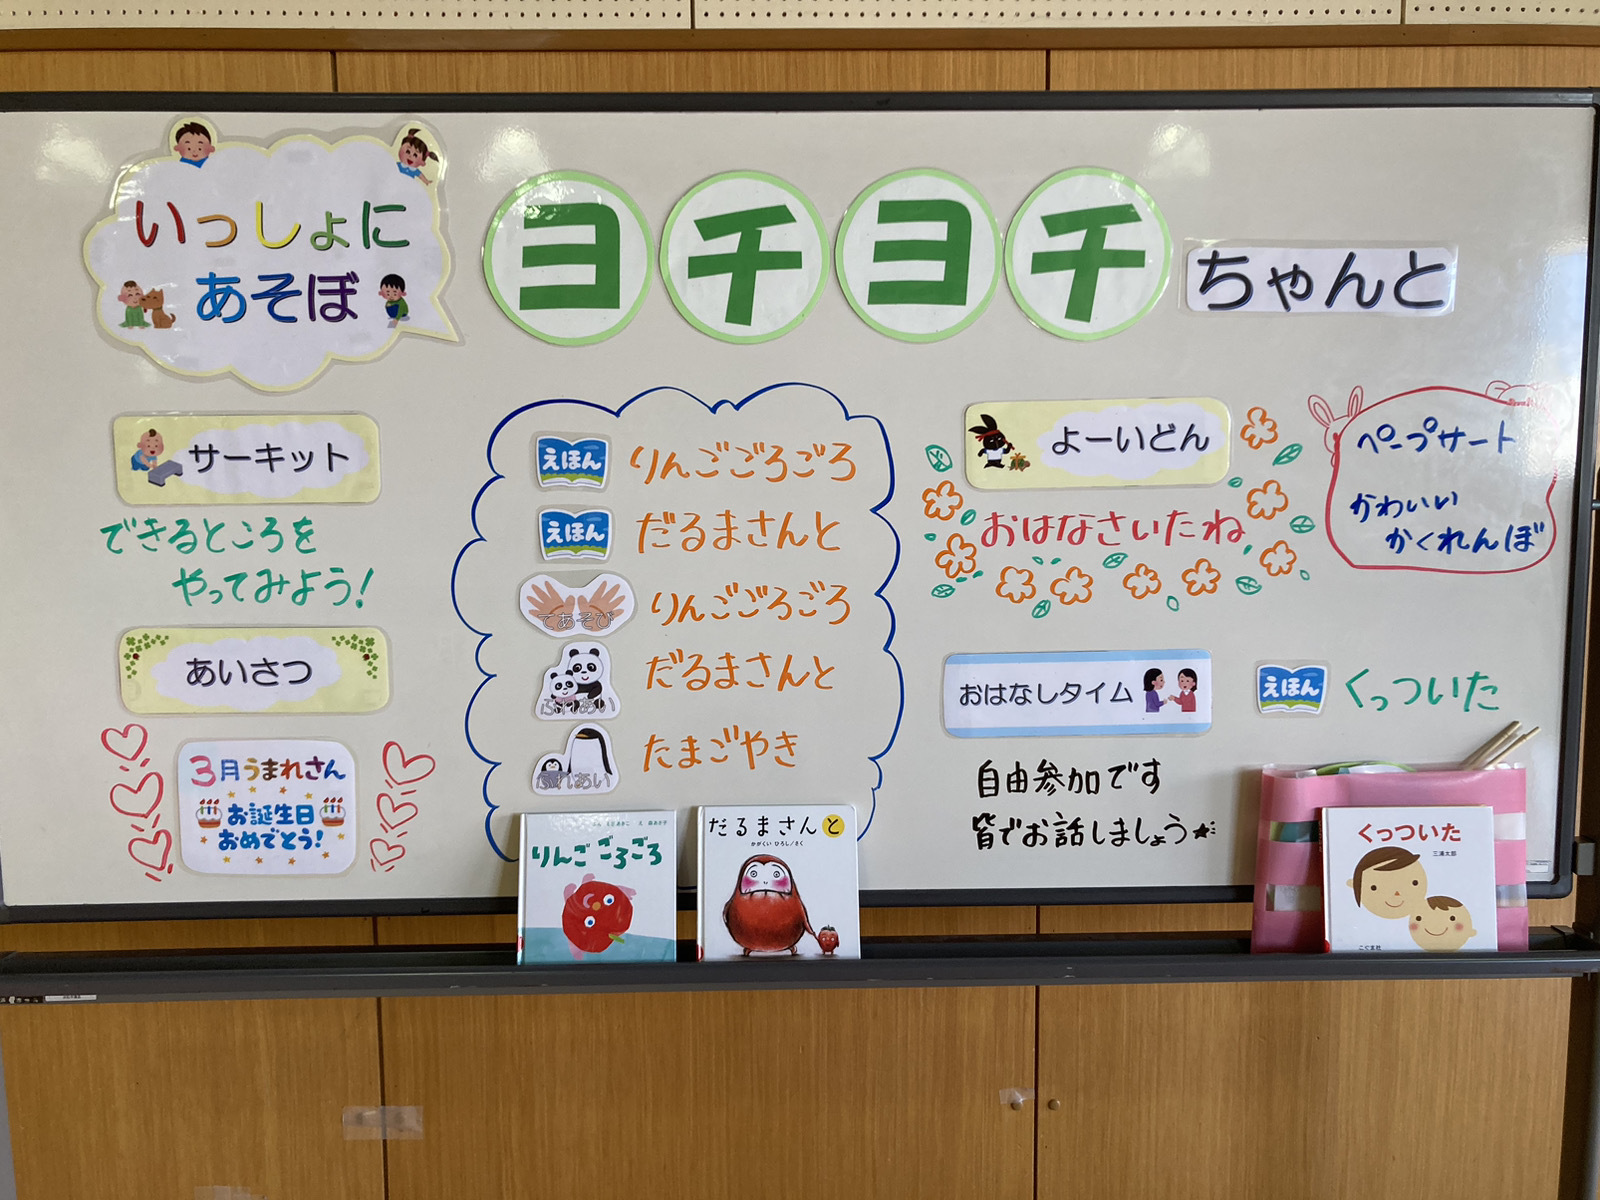 いっしょに
あそぼ
ヨチヨチ
ちゃんと
サーキット
できるところを
やってみよう!
あいさつ
3月うまれさん
お誕生日
おめでとう!
えほん りんごごろごろ
えほん だるまさんと
てあそび りんごごろごろ
ふれあい だるまさんと
ふれあい たまごやき
りんごごろごろ
だるまさんと
かがくい ひろし/さく
よーいどん
おはなさいたね
ペープサート
かわいい
かくれんぼ
おはなしタイム
えほん くっついた
自由参加です
皆でお話しましょう★
くっついた
三浦太郎
こぐま社